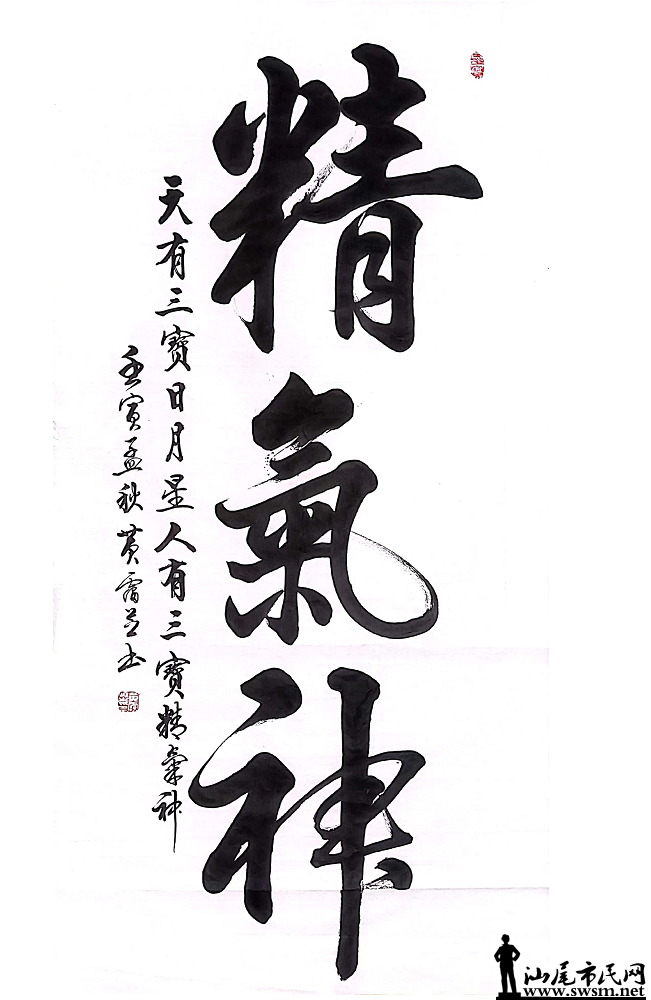 精氣神
天有三寶日月星人有三寶精氣神
壬寅孟秋黃霑芝书
汕尾市民网
www.swsm.net